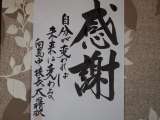 感謝
自分が変われば
未来は変わる
向島中 校長 大